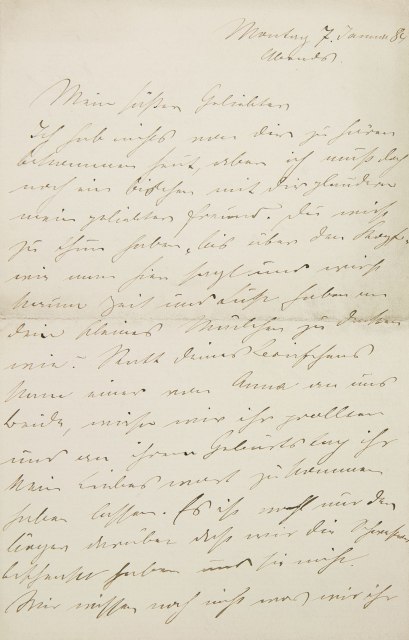 Montag 7. Januar 84
Abends.
Mein süßer Geliebter
Ich habe nichts von dir zu hören
bekommen heut, aber ich muß doch
noch ein bischen mit dir plaudern
mein geliebter Freund. Du wirst
zu thun haben, bis über den Kopf,
wie man hier sagt und wirst
kaum Zeit und Lust haben an
dein kleines zu denken
wie? Statt deines Briefchens
kam einer von Anna an uns
beide, worin wir ihr grollten
und an ihrem Geburtstag ihr
kein liebes Wort zukommen
haben lassen. Es ist wohl nur der
Ärger darüber daß wir die
beschenkt haben und sie nicht.
Wir wissen noch nicht was wir ihr